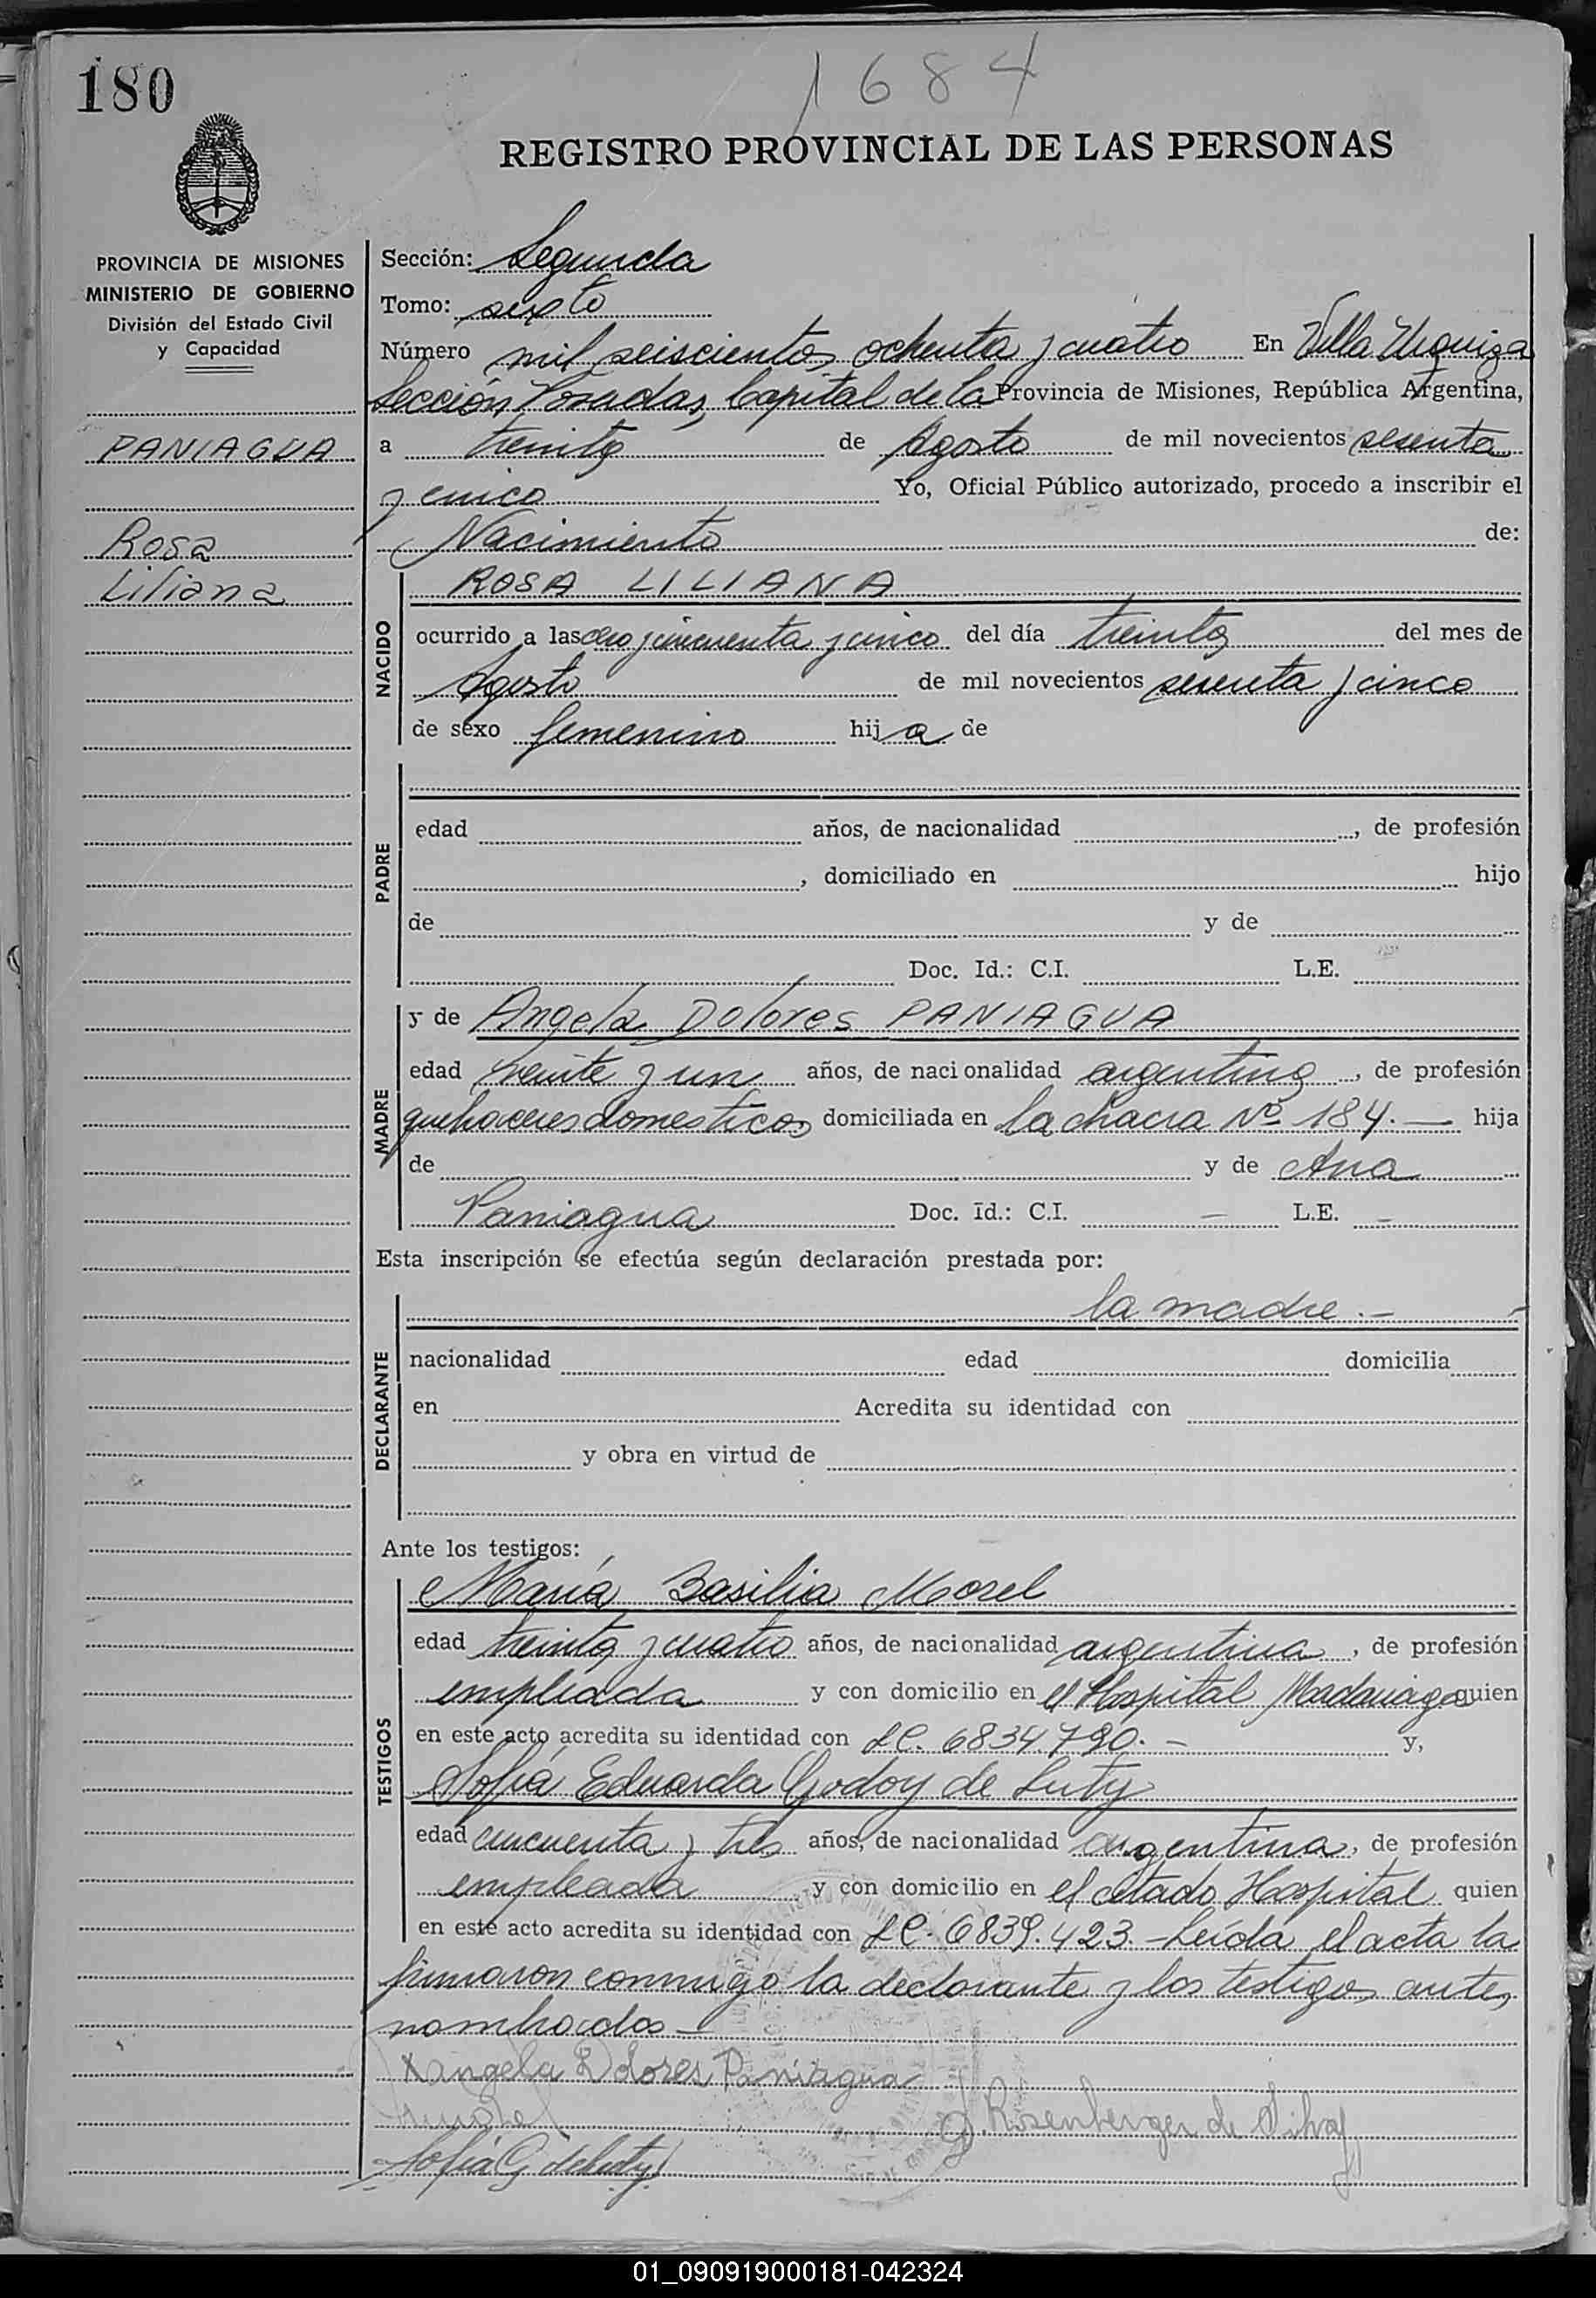 180
1684
REGISTRO PROVINCIAL DE LAS PERSONAS
PROVINCIA DE MISIONES
MINISTERIO DE GOBIERNO
División del Estado Civil
y Capacidad
PANIAGUA
Rosa
Liliana
Sección: Segunda
Tomo: sexto
Número mil seiscientos ochenta y cuatro En Villa Urquiza
Sección Posadas, Capital de la Provincia de Misiones, República Argentina,
a treinta de Agosto de mil novecientos sesenta
y cinco Yo, Oficial Público autorizado, procedo a inscribir el
Nacimiento de:
NACIDO
ROSA LILIANA
ocurrido a las cero y cincuenta y cinco del día treinta del mes de
Agosto de mil novecientos sesenta y cinco
de sexo femenino hija de
PADRE
edad años, de nacionalidad , de profesión
, domiciliado en hijo
de y de
Doc. Id.: C.I. L.E.
MADRE
y de Angela Dolores PANIAGUA
edad veinte y un años, de nacionalidad argentina, de profesión
quehaceres domesticos domiciliada en la chacra Nº 184.— hija
de y de Ana
Paniagua Doc. Id.: C.I. — L.E. —
Esta inscripción se efectúa según declaración prestada por:
DECLARANTE
la madre.—
nacionalidad edad domicilia
en Acredita su identidad con
y obra en virtud de
Ante los testigos:
TESTIGOS
María Basilia Morel
edad treinta y cuatro años, de nacionalidad argentina, de profesión
empleada y con domicilio en el Hospital Madariaga quien
en este acto acredita su identidad con LC. 6834.790.— y,
Sofía Eduarda Godoy de Luty
edad cincuenta y tres años, de nacionalidad argentina, de profesión
empleada y con domicilio en el citado Hospital quien
en este acto acredita su identidad con LC. 6839.423.—Leída el acta la
firmaron conmigo la declarante y los testigos antes
nombrados—
Angela Dolores Paniagua
J. Rosenberger de Silva
Sofía G de Luty
01_090919000181-042324